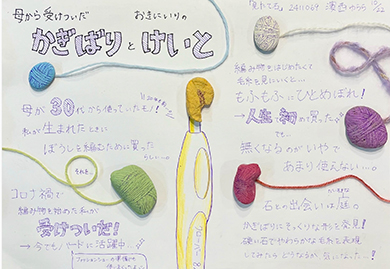 母から受けついだ
おきにいりの
かぎばりとけいと
母が30年くらい使っていたモノ!
私が生まれたときに
ぼうしを編むために買った
らしい…。
それを、
コロナ禍で
編み物を始めた私が
受けついだ!
→今でもハードに活躍中…
編み物をはじめたくて
毛糸を見にいくと…
もふもふにひとめぼれ!
人生で初めて買った
でも、
無くなるのがいやで
あまり使えない…。
石との出会いは庭。
かぎばりにそっくりな形を発見!
硬い石でやわらかな毛糸を表現
してみたらどうなるか気になった…!